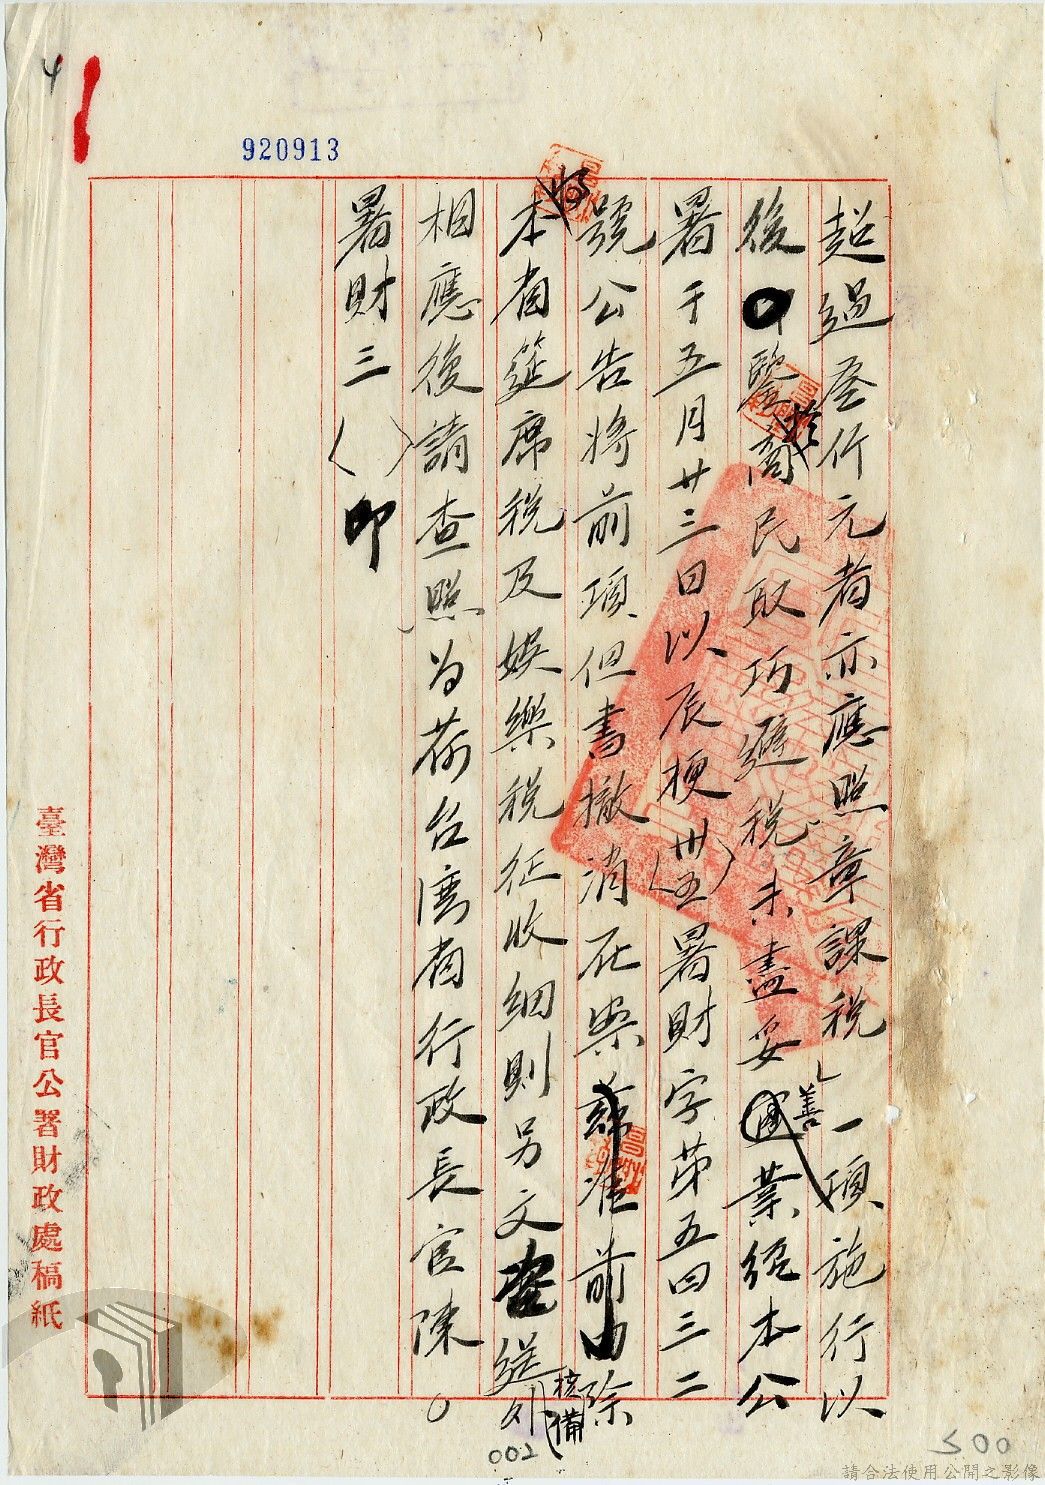 4
920913
超過叁仟元者亦應照章課税」一項施行以
後鑒於商民取巧避税未盡妥善業經本公
署于五月廿三日以辰梗(卅五)署財字第五四三二
號公告將前項但書撤消在案茲准前由除
將本省筵席税及娛樂税征收細則另文送核備外
相應復請查照為荷台灣省行政長官陳○
署財三( )印
臺灣省行政長官公署財政處稿紙
002
500
請合法使用公開之影像